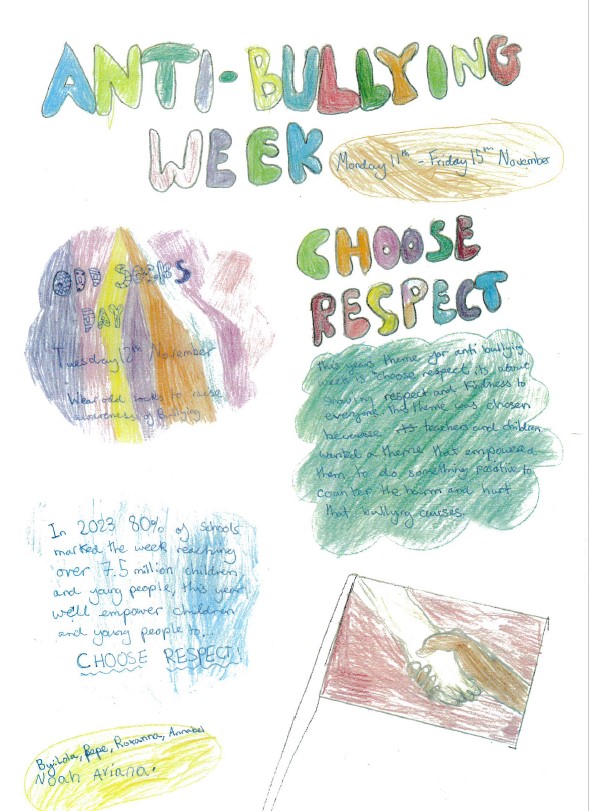 ANTI-BULLYING
WEEK
Monday 11th - Friday 15th November
ODD SOCKS
DAY
Tuesday 12th November
Wear odd socks to raise
awareness of Bullying
CHOOSE
RESPECT
this years theme for anti bullying
week is "choose respect, its about
showing respect and kindness to
everyone. This theme was chosen
because teachers and children
wanted a theme that empowered
them to do something positive to
counter the harm and hurt
that bullying causes.
In 2023 80% of schools
marked the week reaching
over 7.5 million children
and young people, this year
we'll empower children
and young people to...
CHOOSE RESPECT!
By: Lola, Pepe, Roxanna, Annabel
Noah Ariana.